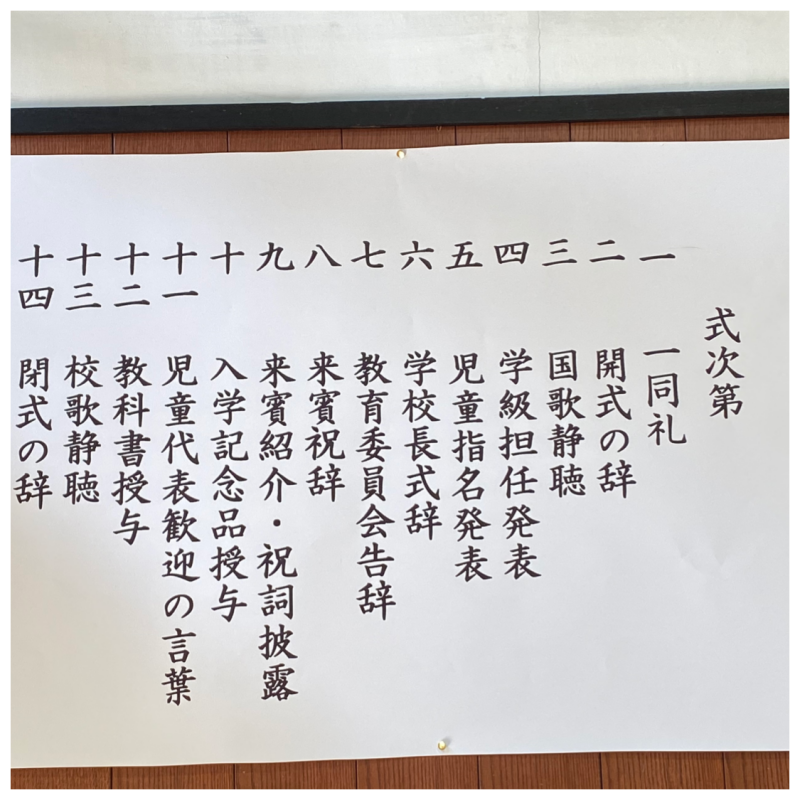 式次第
一 一同礼
二 開式の辞
三 国歌静聴
四 学級担任発表
五 児童指名発表
六 学校長式辞
七 教育委員会告辞
八 来賓祝辞
九 来賓紹介・祝詞披露
十 入学記念品授与
十一 児童代表歓迎の言葉
十二 教科書授与
十三 校歌静聴
十四 閉式の辞